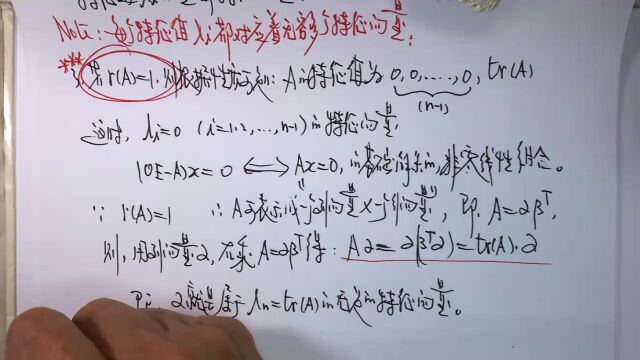 Note: 每个特征值λi都对应着无穷多个特征向量;
*** 若r(A)=1, 则根据性质可知: A的特征值为 0, 0, ..., 0, tr(A)
(n-1)
这时, λi=0 (i=1.2, ..., n-1)的特征向量
(0E-A)x=0 ⟺ Ax=0, 的基础解系的, 非零线性组合。
∵ r(A)=1 ∴ A可表示成一个列向量×一个行向量, 即, A=αβᵀ
则, 用列向量α, 右乘 A=αβᵀ得: Aα=α(βᵀα)=tr(A)·α
即: α就是属于λn=tr(A)的 特征向量。